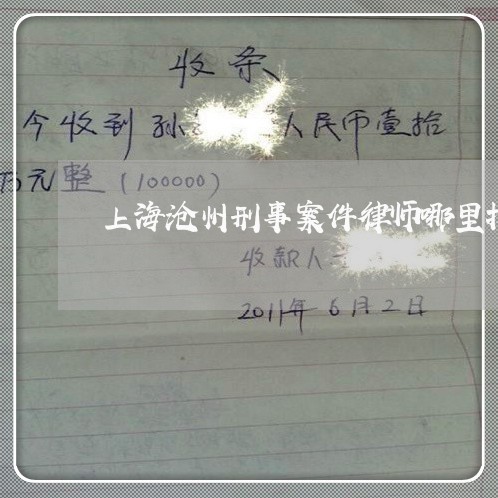 收条
今收到孙 人民币壹拾
万元整(100000)
上海沧州刑事案件律师哪里找
收款人
2011年6月2日